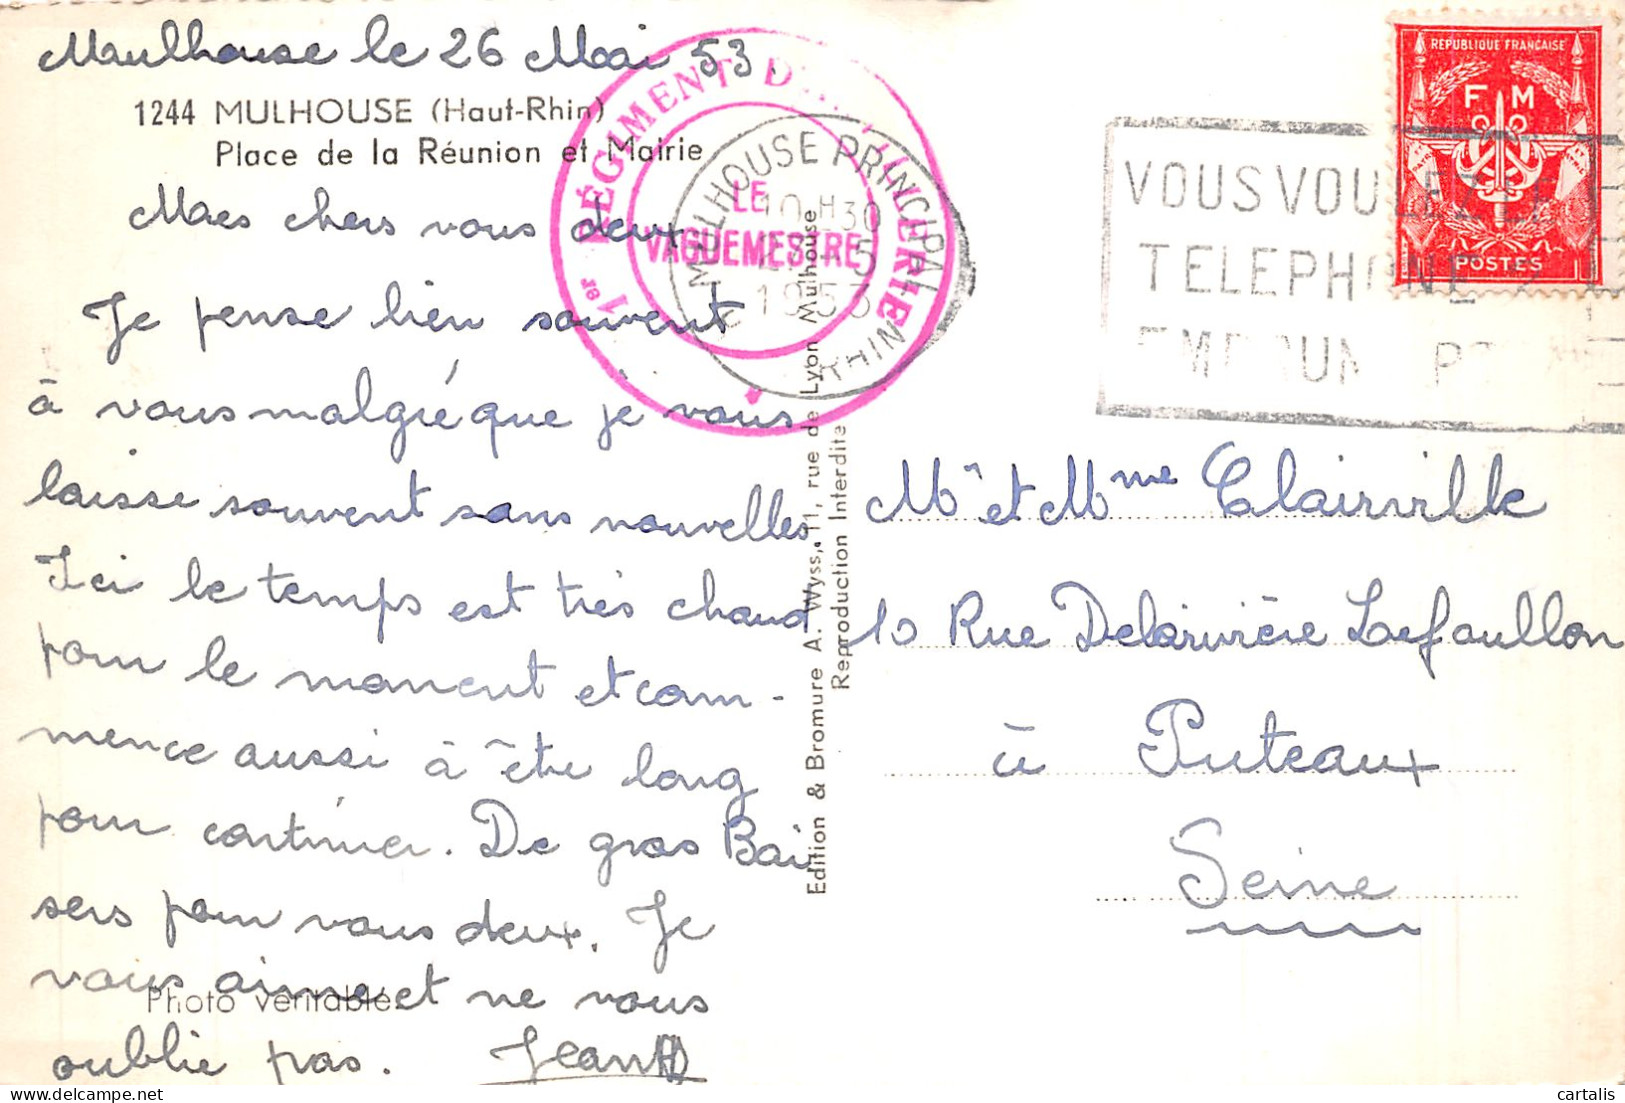 Mulhouse le 26 Mai 53.
1244 MULHOUSE (Haut-Rhin)
Place de la Réunion et Mairie
Mes chers vous deux
Je pense bien souvent
à vous malgré que je vous
laisse souvent sans nouvelles.
Ici le temps est très chaud
pour le moment et com-
mence aussi à être long
pour continuer. De gros Bai
sers pour vous deux. Je
vous aime et ne vous
oublie pas. Jean
Photo véritable
1er RÉGIMENT D'
LE
VAGUEMESTRE
MULHOUSE PRINCIPAL
10 H 30
1953
RHIN
Edition & Bromure A. Wyss, 11, rue de Lyon Mulhouse
Reproduction Interdite
REPUBLIQUE FRANÇAISE
F M
POSTES
VOUS VOULEZ LE
TELEPHONE
Mr et Mme Clairville
10 Rue Delarivière Lefoullon
à Puteaux
Seine
cartalis